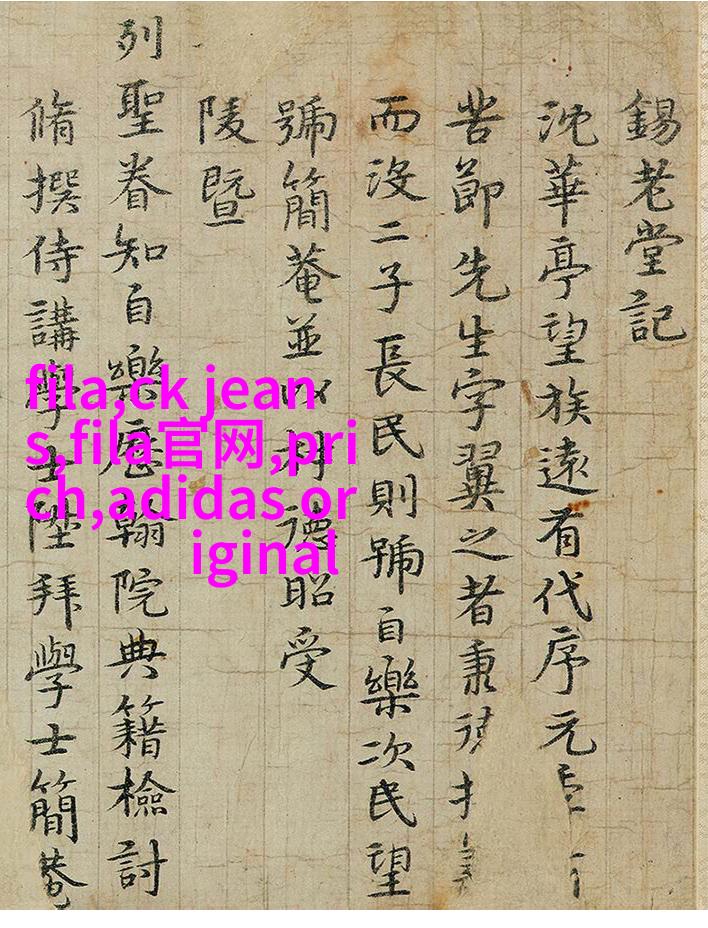 錫老堂記
沈華亭望族遠有代序元
苦節先生字翼之者秉
而沒二子長民則號自樂次民望
號簡菴並以材德昭受
陵暨
列聖眷知自樂歷翰院典籍檢討
脩撰侍講學士陞拜學士簡菴
fila,ck jean
s,fila官网,pri
ch,adidas or
iginal